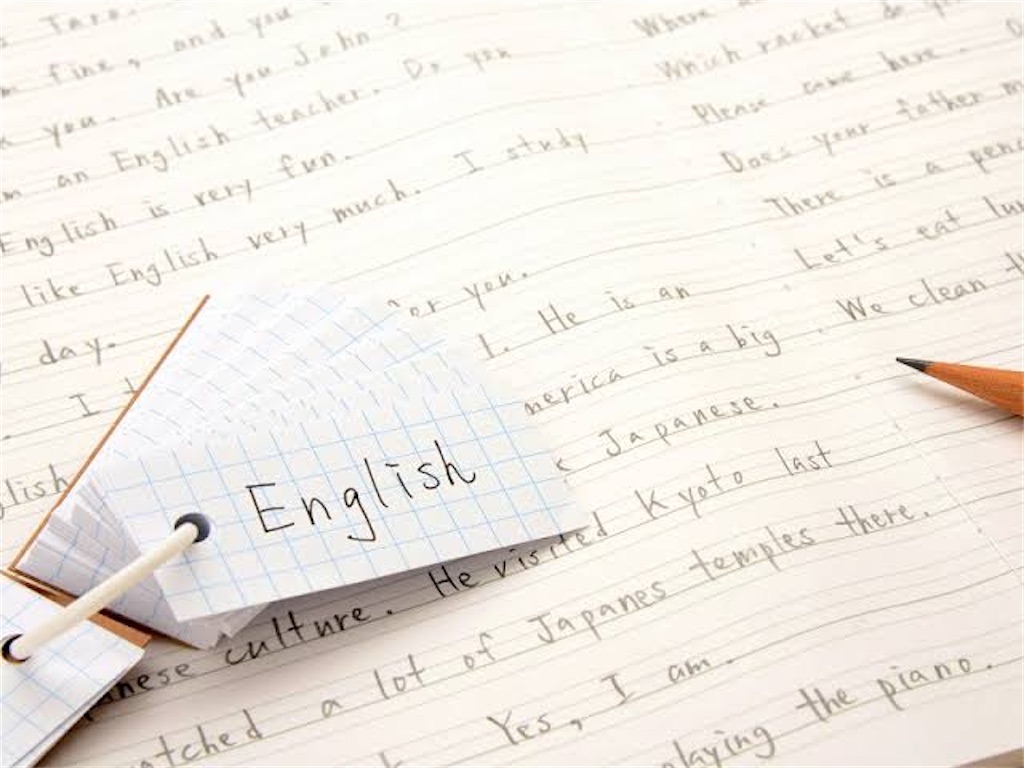 Taro.
fine, and you
you. Are you John?
an English teacher. Do you
English is very fun.
like English very much. I study
day.
I
er you.
He is an
merica is a big
Japanese.
English
nese culture. He visited Kyoto last
tched a lot of Japanes temples there.
Yes, I am.
laying the piano.
Where
Which racket do
Please come here.
Does your father
There is a penc
Let's eat lun
We clean th
English